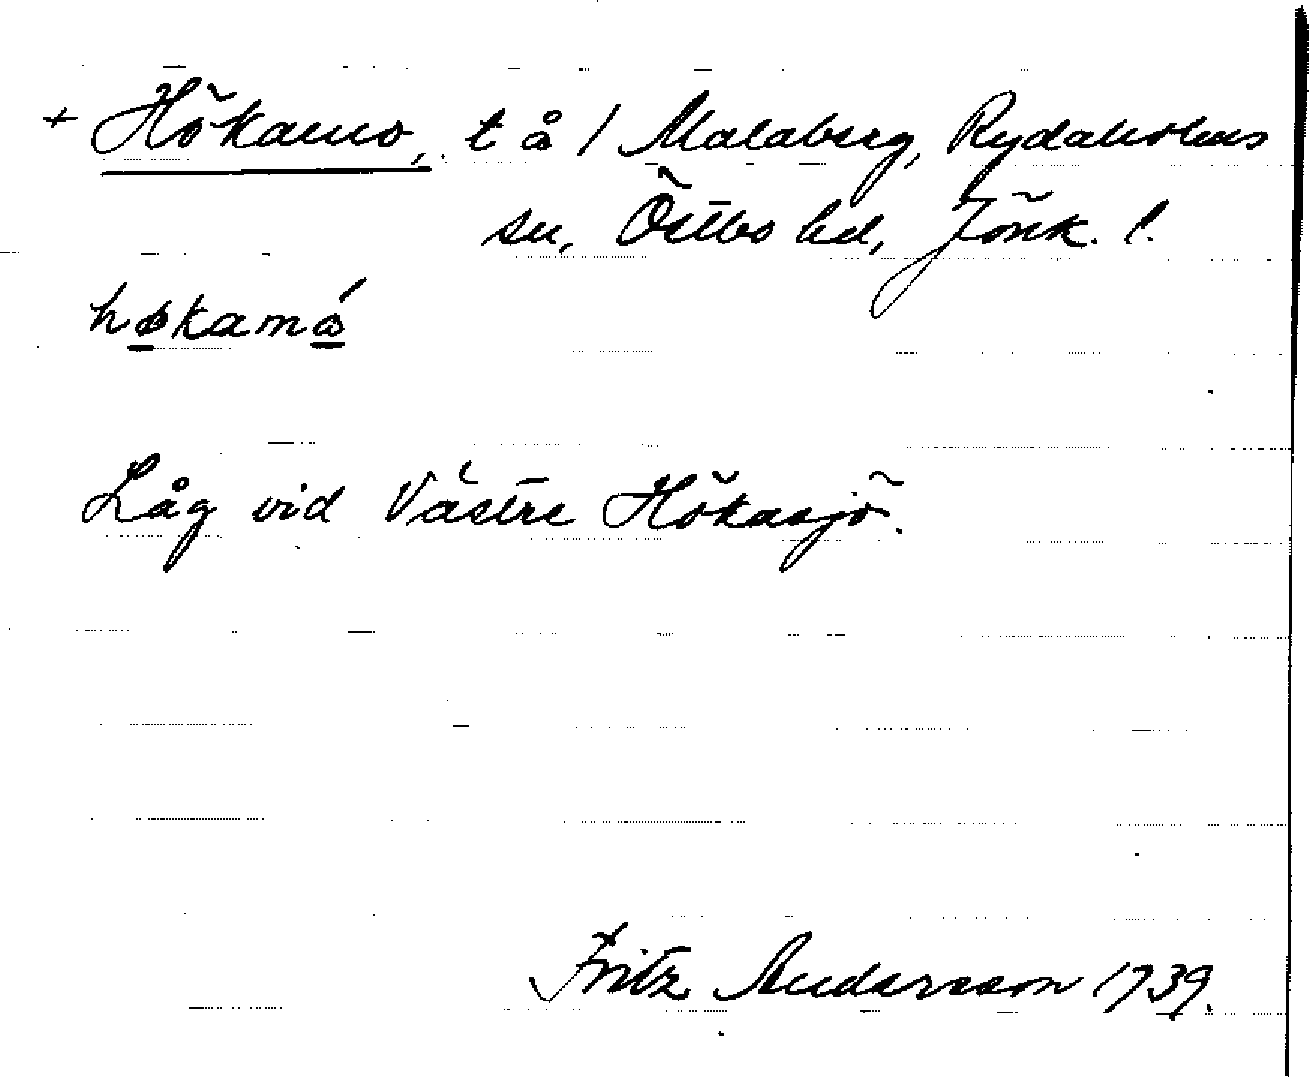 + Hökamo, t å 1 Malaberg, Rydaholms
sn, Östbo hd, Jönk. l.
høkamǻ
Låg vid Västre Hökasjö.
Fritz Andersson 1939.